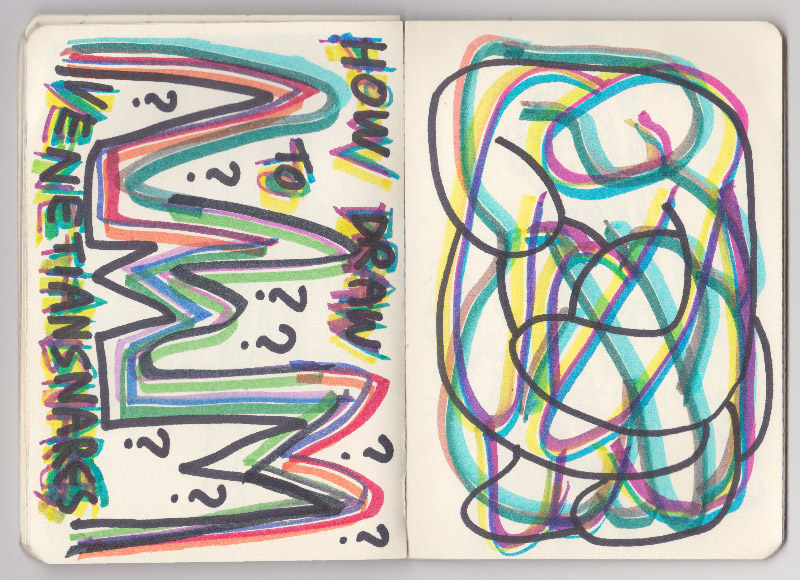 HOW TO DRAW
? ?
? ?
? ?
? ?
VENETIANSNARES